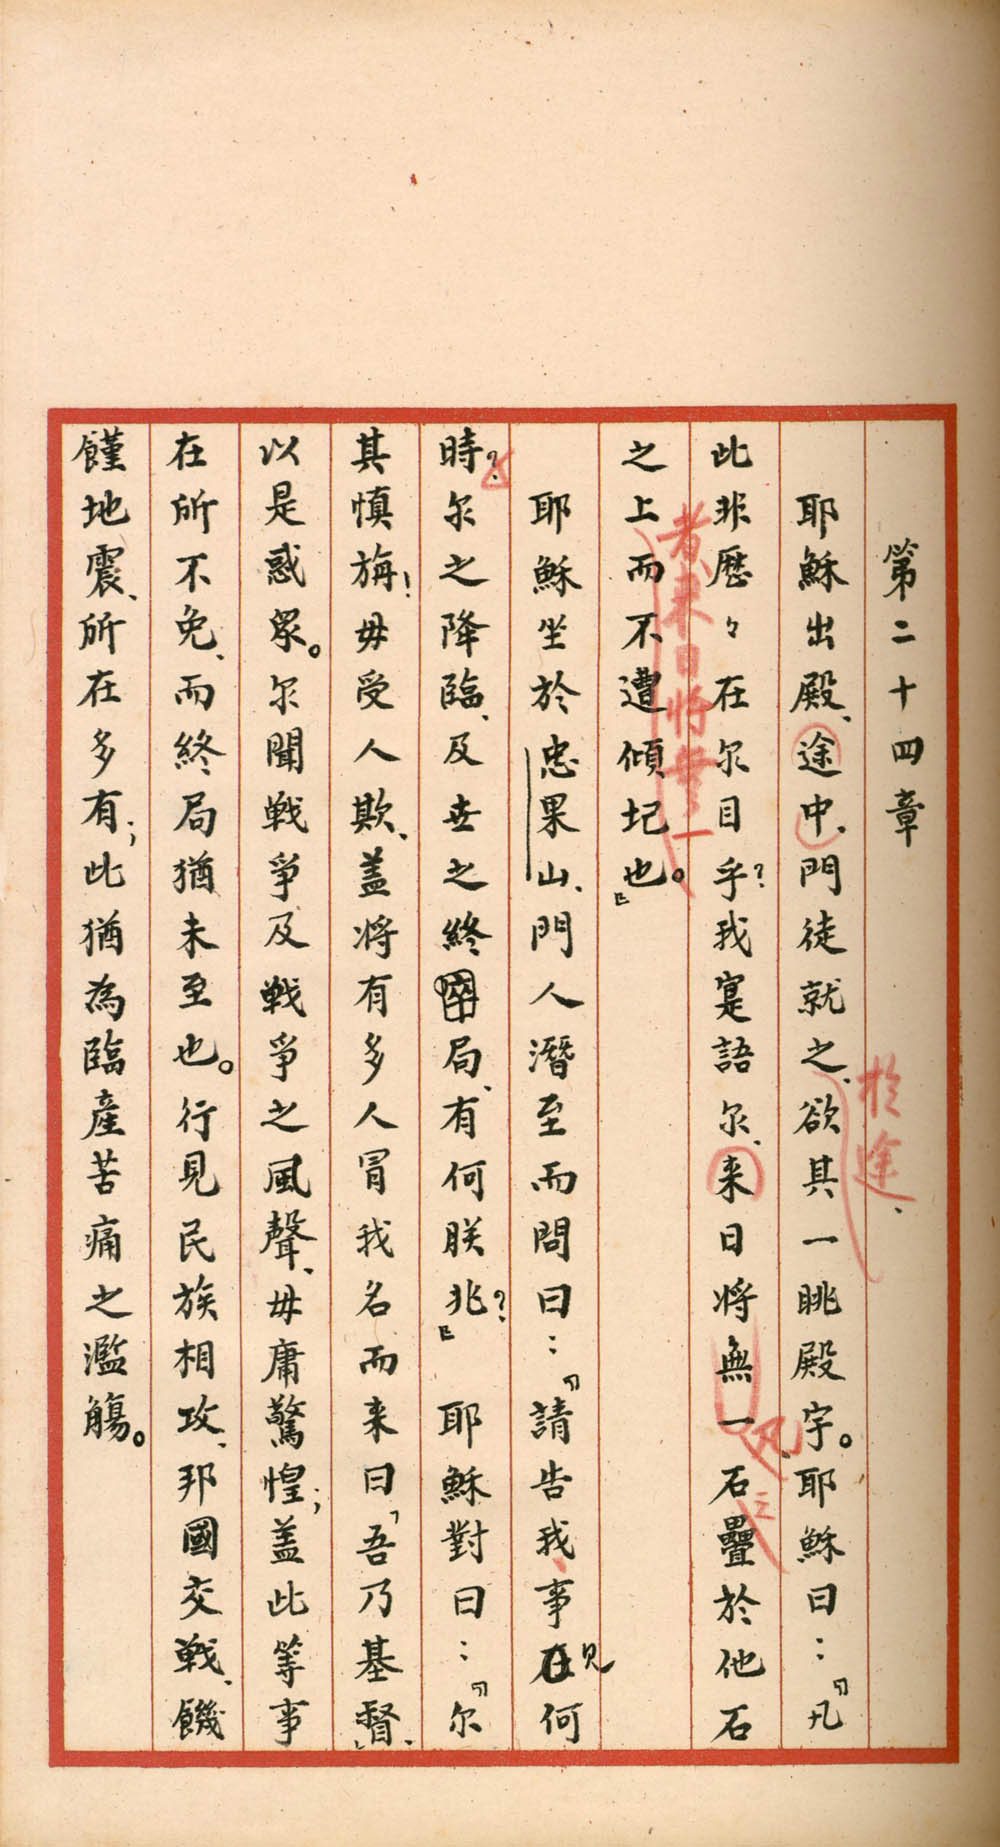 第二十四章
耶穌出殿、途中、門徒就之、欲其一眺殿宇。耶穌曰：『凡
於途、
此非歷々在尔目乎？我寔語尔、来日將無一石疊於他石
者、来日將無一
之上而不遭傾圮也。』
耶穌坐於忠果山、門人潛至而問曰：『請告我、事見何
時？尔之降臨、及世之終局、有何朕兆？』耶穌對曰：『尔
其慎旃！毋受人欺、蓋将有多人冒我名而来曰、『吾乃基督』、
以是惑眾。尔聞戰爭及戰爭之風聲、毋庸驚惶；蓋此等事
在所不免、而終局猶未至也。行見民族相攻、邦國交戰、饑
饉地震、所在多有；此猶為臨產苦痛之濫觴。